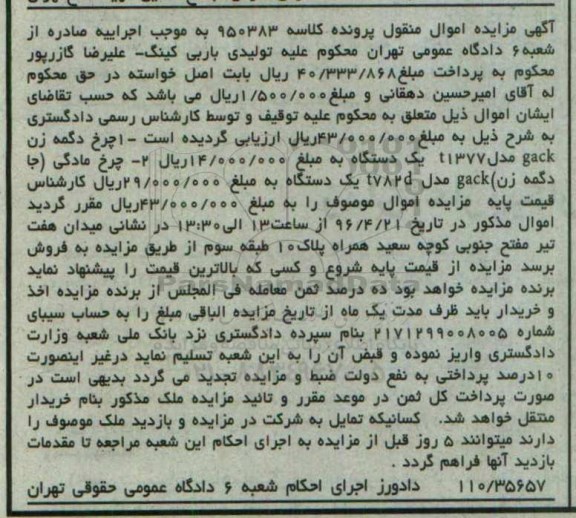 آگهی مزایده اموال منقول پرونده کلاسه ۹۵۰۳۸۳ به موجب اجراییه صادره از
شعبه۶ دادگاه عمومی تهران محکوم علیه تولیدی باربی کینگ- علیرضا گازرپور
محکوم به پرداخت مبلغ۴۰/۳۳۳/۸۶۸ ریال بابت اصل خواسته در حق محکوم
له آقای امیرحسین دهقانی و مبلغ۱/۵۰۰/۰۰۰ریال می باشد که حسب تقاضای
ایشان اموال ذیل متعلق به محکوم علیه توقیف و توسط کارشناس رسمی دادگستری
به شرح ذیل به مبلغ۴۳/۰۰۰/۰۰۰ریال ارزیابی گردیده است -۱چرخ دگمه زن
gack مدل۱۳۷۷t یک دستگاه به مبلغ ۱۴/۰۰۰/۰۰۰ریال ۲- چرخ مادگی (جا
دگمه زن)gack مدل t۷۸۲d یک دستگاه به مبلغ ۲۹/۰۰۰/۰۰۰ریال کارشناس
قیمت پایه مزایده اموال موصوف را به مبلغ ۴۳/۰۰۰/۰۰۰ریال مقرر گردید
اموال مذکور در تاریخ ۹۶/۴/۲۱ از ساعت۱۳ الی۱۳:۳۰ در نشانی میدان هفت
تیر مفتح جنوبی کوچه سعید همراه پلاک۱۰ طبقه سوم از طریق مزایده به فروش
برسد مزایده از قیمت پایه شروع و کسی که بالاترین قیمت را پیشنهاد نماید
برنده مزایده خواهد بود ده درصد ثمن معامله فی المجلس از برنده مزایده اخذ
و خریدار باید ظرف مدت یک ماه از تاریخ مزایده الباقی مبلغ را به حساب سیبای
شماره ۲۱۷۱۲۹۹۰۰۸۰۰۵ بنام سپرده دادگستری نزد بانک ملی شعبه وزارت
دادگستری واریز نموده و قبض آن را به این شعبه تسلیم نماید درغیر اینصورت
۱۰درصد پرداختی به نفع دولت ضبط و مزایده تجدید می گردد بدیهی است در
صورت پرداخت کل ثمن در موعد مقرر و تائید مزایده ملک مذکور بنام خریدار
منتقل خواهد شد. کسانیکه تمایل به شرکت در مزایده و بازدید ملک موصوف را
دارند میتوانند ۵ روز قبل از مزایده به اجرای احکام این شعبه مراجعه تا مقدمات
بازدید آنها فراهم گردد .
۱۱۰/۳۵۶۵۷ دادورز اجرای احکام شعبه ۶ دادگاه عمومی حقوقی تهران